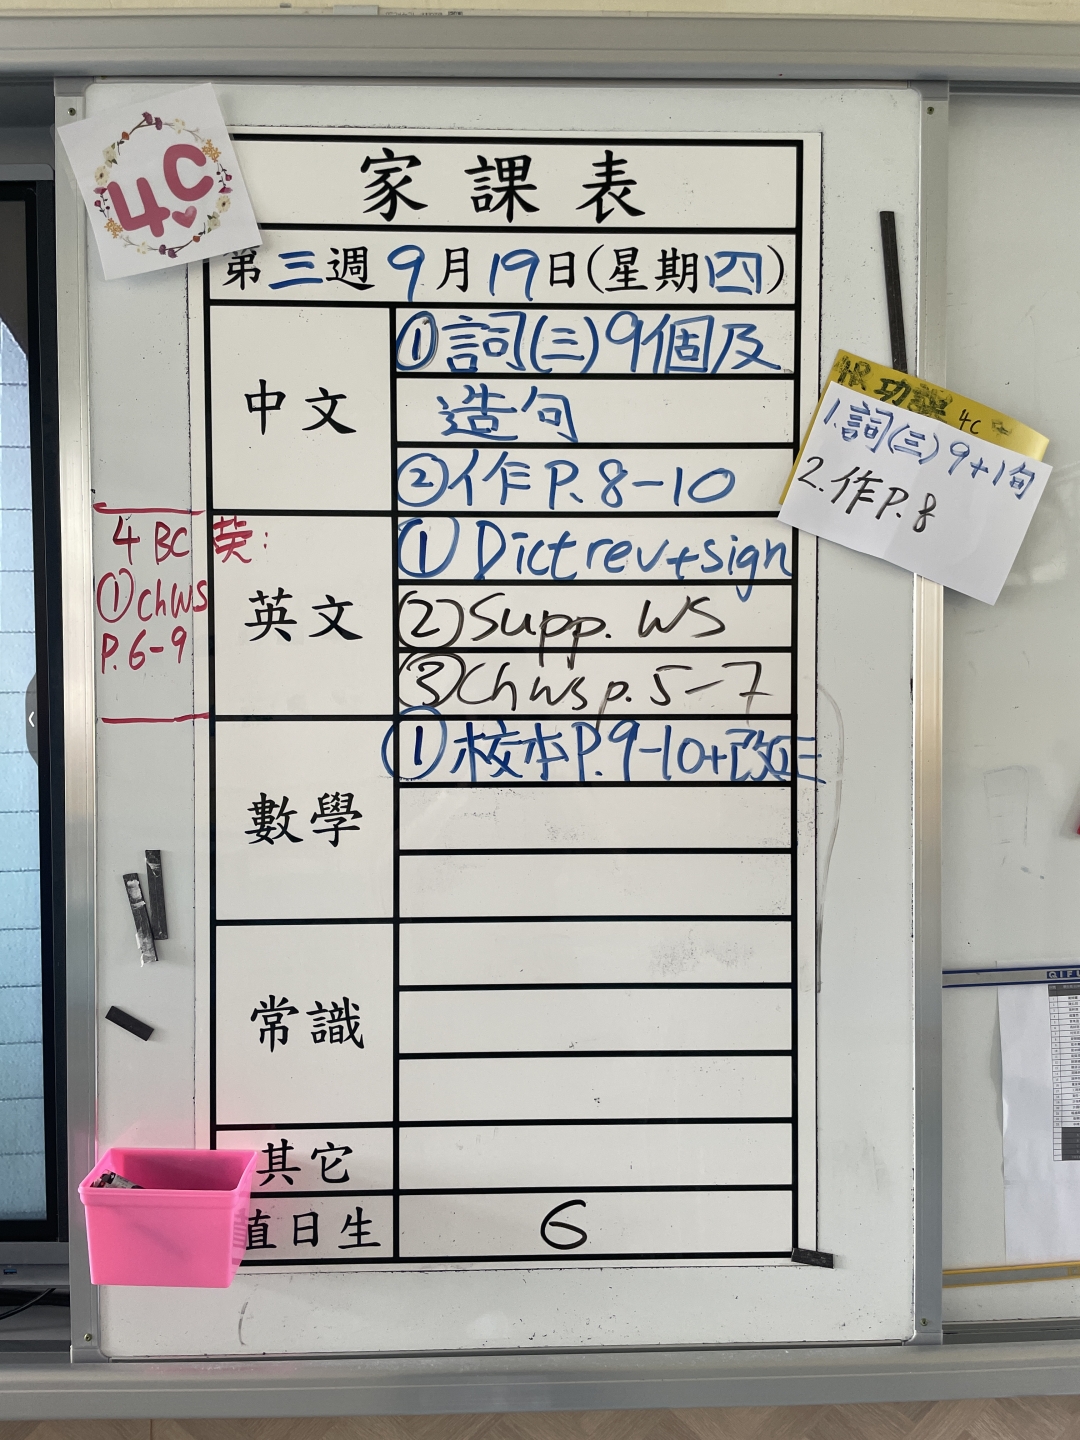 4C
家課表
第三週9月19日(星期四)
中文
①詞(三)9個及
造句
②作P.8-10
英文
①Dict rev+sign
②Supp. WS
③Ch WS p.5-7
數學
①校本P.9-10+改正
常識
其它
直日生
6
4BC 英:
①Ch WS
P.6-9
功課 4C
1.詞(三)9+1句
2.作P.8